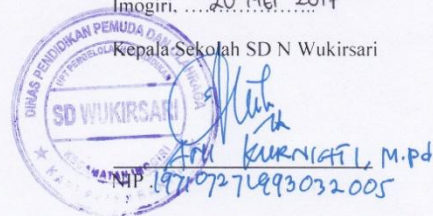 Imogiri, ....20 MEI 2017
Kepala Sekolah SD N Wukirsari
DINAS PENDIDIKAN PEMUDA DAN OLAHRAGA
UPT PENGELOLA PENDIDIKAN
SD WUKIRSARI
KECAMATAN IMOGIRI
KURNIATI, M.Pd
NIP. 197107271993032005